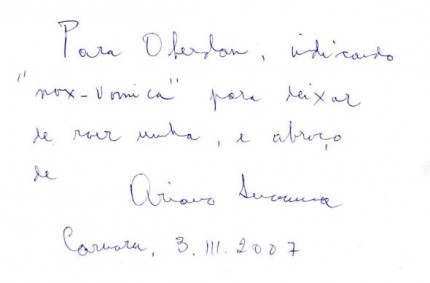 Para Oberdan, indicando
"nox-vomica" para deixar
de roer unha, e abraço
de Ariano Suassuna
Caruaru, 3.III.2007